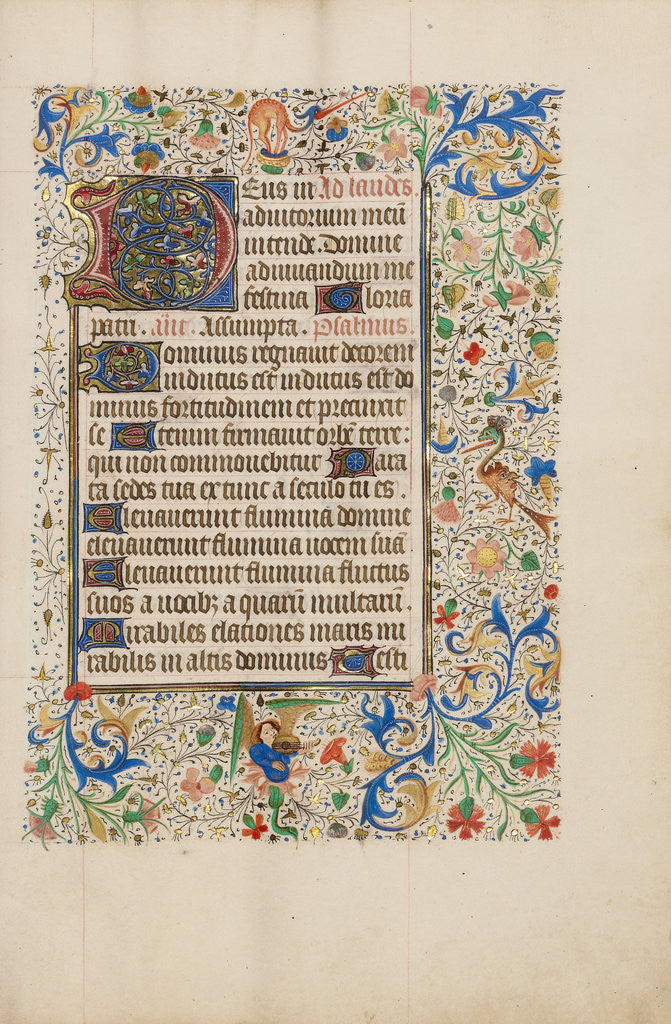 Deus in Ad laudes.
adiutorium meū
intende. Domine
ad iuuandum me
festina Gloria
patri. añt. Assumpta. Psalmus.
Dominus regnauit decorem
indutus est indutus est do
minus fortitudinem et precinxit
se Etenim firmauit orbē terre:
qui non commouebitur Para
ta sedes tua ex tunc a seculo tu es.
Eleuauerunt flumina domine
eleuauerunt flumina uocem suā
Eleuauerunt flumina fluctus
suos a uocibꝫ aquarū multarū.
Mirabiles elationes maris mi
rabilis in altis dominus Testi